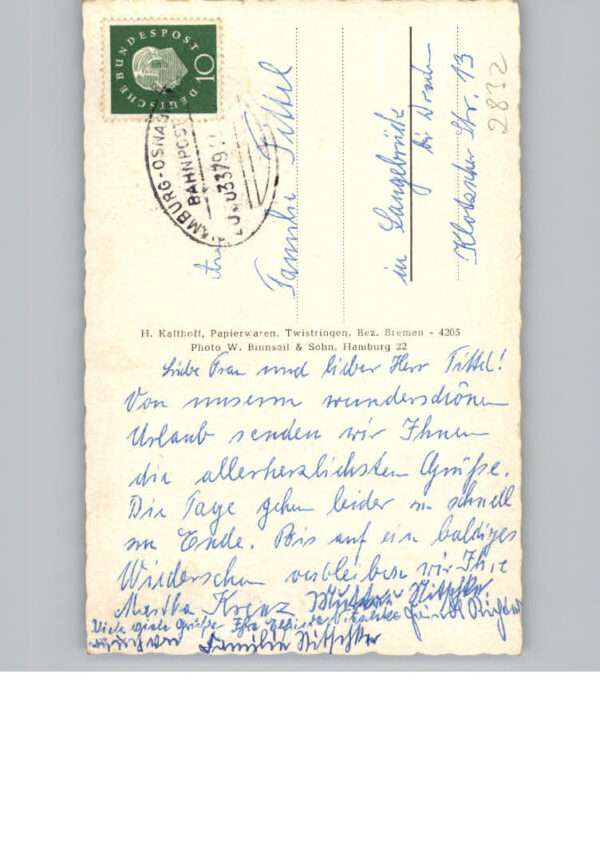 DEUTSCHE BUNDESPOST
10
BAHNPOST
2832
Familie Tittel
in Langebrück
bei Dresden
Klotzscher Str. 13
H. Kalthoff, Papierwaren, Twistringen, Bez. Bremen - 4205
Photo W. Binnsail & Sohn, Hamburg 22
Liebe Frau und lieber Herr Tittel!
Von unserem wunderschönen
Urlaub senden wir Ihnen
die allerherzlichsten Grüße.
Die Tage gehen leider so schnell
zu Ende. Bis auf ein baldiges
Wiedersehen verbleiben wir Ihre
Martha Krenz Nitschke
Viele viele Grüße Ihre
Familie Nitschke